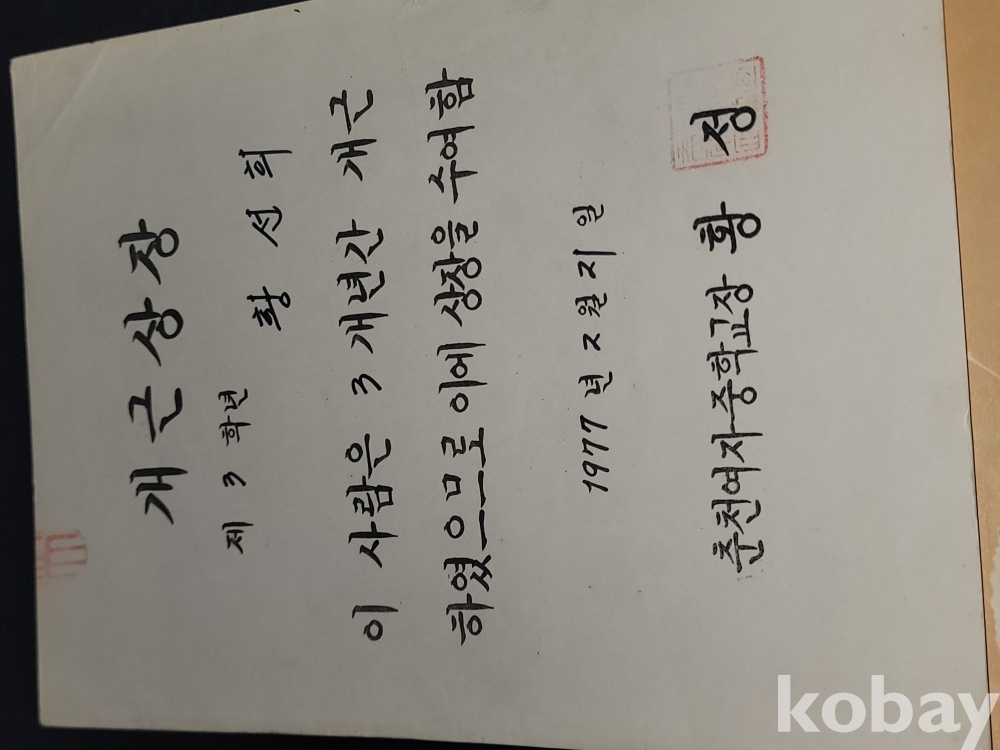 개근상장
제 3 학년
황선희
이 사람은 3개년간 개근
하였으므로 이에 상장을 수여함
1977년 2월 일
춘천여자중학교장 황 정
kobay